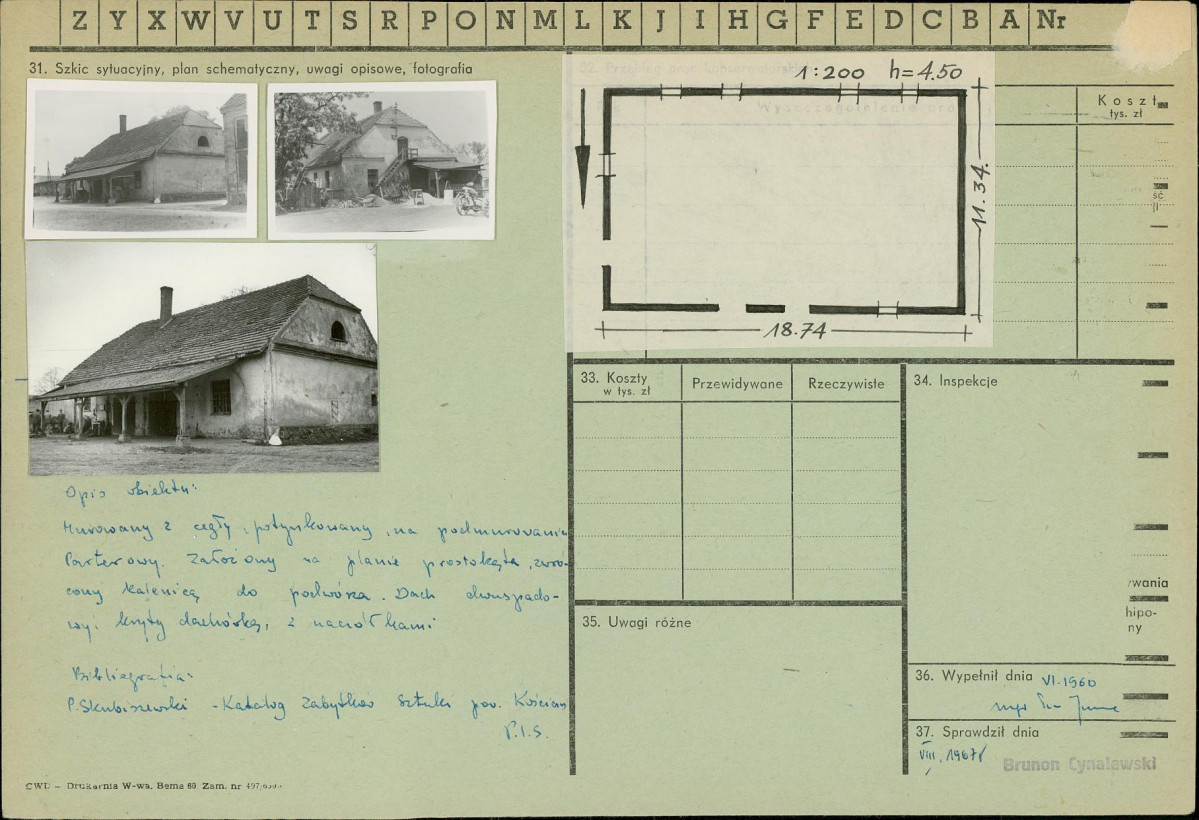 Z Y X W V U T S R P O N M L K J I H G F E D C B A Nr
31. Szkic sytuacyjny, plan schematyczny, uwagi opisowe, fotografia
1:200 h=4.50
11.34.
18.74
Koszt
tys. zł
Opis obiektu:
Murowany z cegły, potynkowany, na podmurowaniu
Parterowy. Założony na planie prostokąta, zwró-
cony kalenicą do podwórza. Dach dwuspado-
wy. kryty dachówką, z naczółkami
Bibliografia:
P. Skubiszewski - Katalog Zabytków Sztuki pow. Kościan
P.I.S.
CWD - Drukarnia W-wa, Bema 60. Zam. nr
33. Koszty
w tys. zł
Przewidywane
Rzeczywiste
34. Inspekcje
35. Uwagi różne
wania
hipo-
ny
36. Wypełnił dnia VI.1960
mgr
37. Sprawdził dnia
VIII. 1967
Brunon Cynalewski